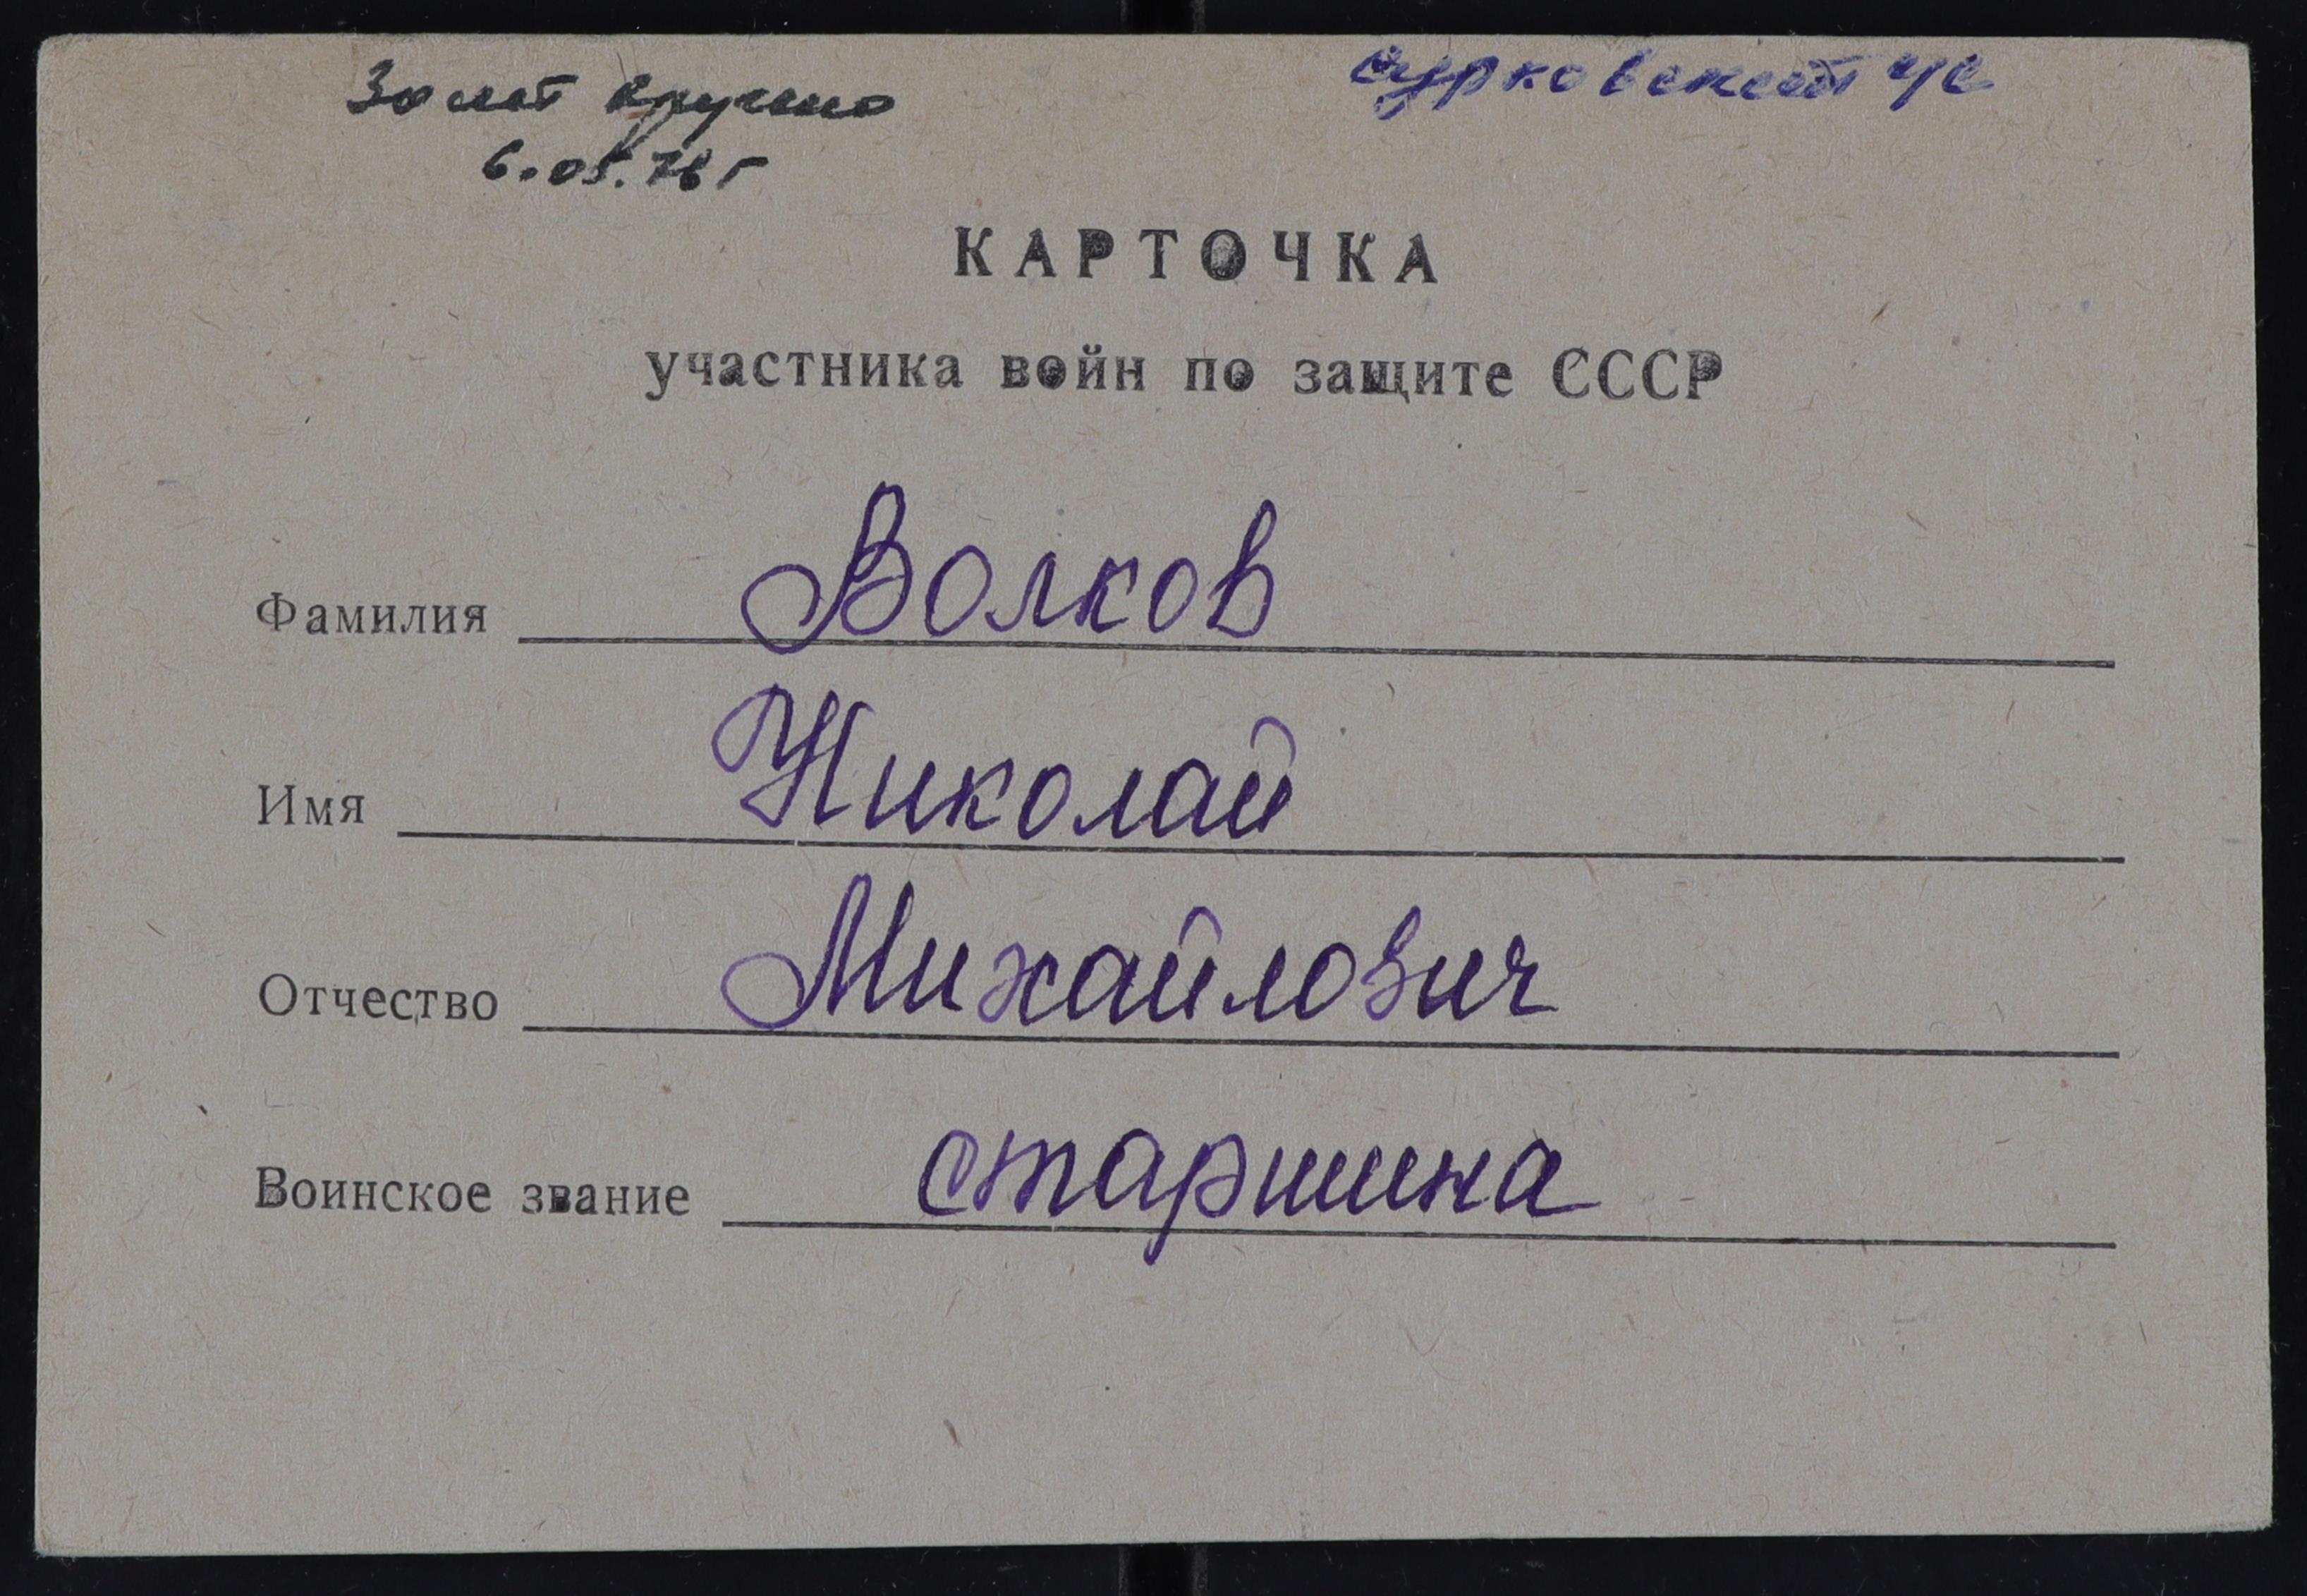 30 лет вручено
6.05.76 г
Сурковский ч/с
КАРТОЧКА
участника войн по защите СССР
Фамилия Волков
Имя Николай
Отчество Михайлович
Воинское звание старшина